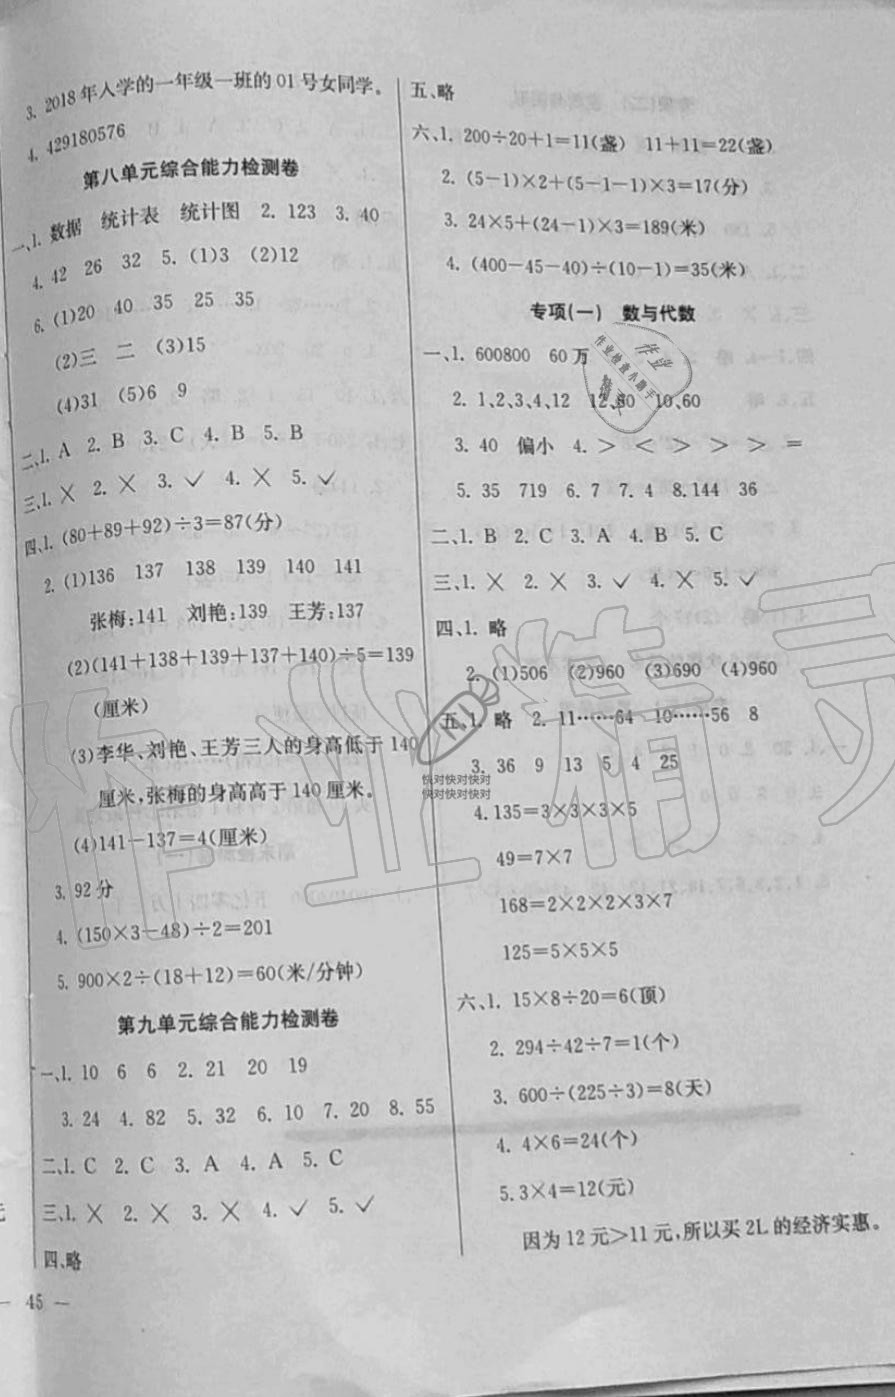 3. 2018年入学的一年级一班的01号女同学。
4. 429180576
第八单元综合能力检测卷
一、1. 数据 统计表 统计图 2. 123 3. 40
4. 42 26 32 5. (1)3 (2)12
6. (1)20 40 35 25 35
(2)三 二 (3)15
(4)31 (5)6 9
二、1. A 2. B 3. C 4. B 5. B
三、1. ✕ 2. ✕ 3. ✓ 4. ✕ 5. ✓
四、1. (80+89+92)÷3=87(分)
2. (1)136 137 138 139 140 141
张梅:141 刘艳:139 王芳:137
(2)(141+138+139+137+140)÷5=139
(厘米)
(3)李华、刘艳、王芳三人的身高低于140
厘米,张梅的身高高于140厘米。
(4)141-137=4(厘米)
3. 92分
4. (150×3-48)÷2=201
5. 900×2÷(18+12)=60(米/分钟)
第九单元综合能力检测卷
一、1. 10 6 6 2. 21 20 19
3. 24 4. 82 5. 32 6. 10 7. 20 8. 55
二、1. C 2. C 3. A 4. A 5. C
三、1. ✕ 2. ✕ 3. ✕ 4. ✓ 5. ✓
四、略
— 45 —
五、略
六、1. 200÷20+1=11(盏) 11+11=22(盏)
2. (5-1)×2+(5-1-1)×3=17(分)
3. 24×5+(24-1)×3=189(米)
4. (400-45-40)÷(10-1)=35(米)
专项(一) 数与代数
一、1. 600800 60万
2. 1、2、3、4、12 12、60 10、60
3. 40 偏小 4. > < > > > =
5. 35 719 6. 7 7. 4 8. 144 36
二、1. B 2. C 3. A 4. B 5. C
三、1. ✕ 2. ✕ 3. ✓ 4. ✕ 5. ✓
四、1. 略
2. (1)506 (2)960 (3)690 (4)960
五、1. 略 2. 11……64 10……56 8
3. 36 9 13 5 4 25
4. 135=3×3×3×5
49=7×7
168=2×2×2×3×7
125=5×5×5
六、1. 15×8÷20=6(顶)
2. 294÷42÷7=1(个)
3. 600÷(225÷3)=8(天)
4. 4×6=24(个)
5. 3×4=12(元)
因为12元>11元,所以买2L的经济实惠。
元
作业
作业检查小助手
快对快对快对
快对快对快对
作业精灵